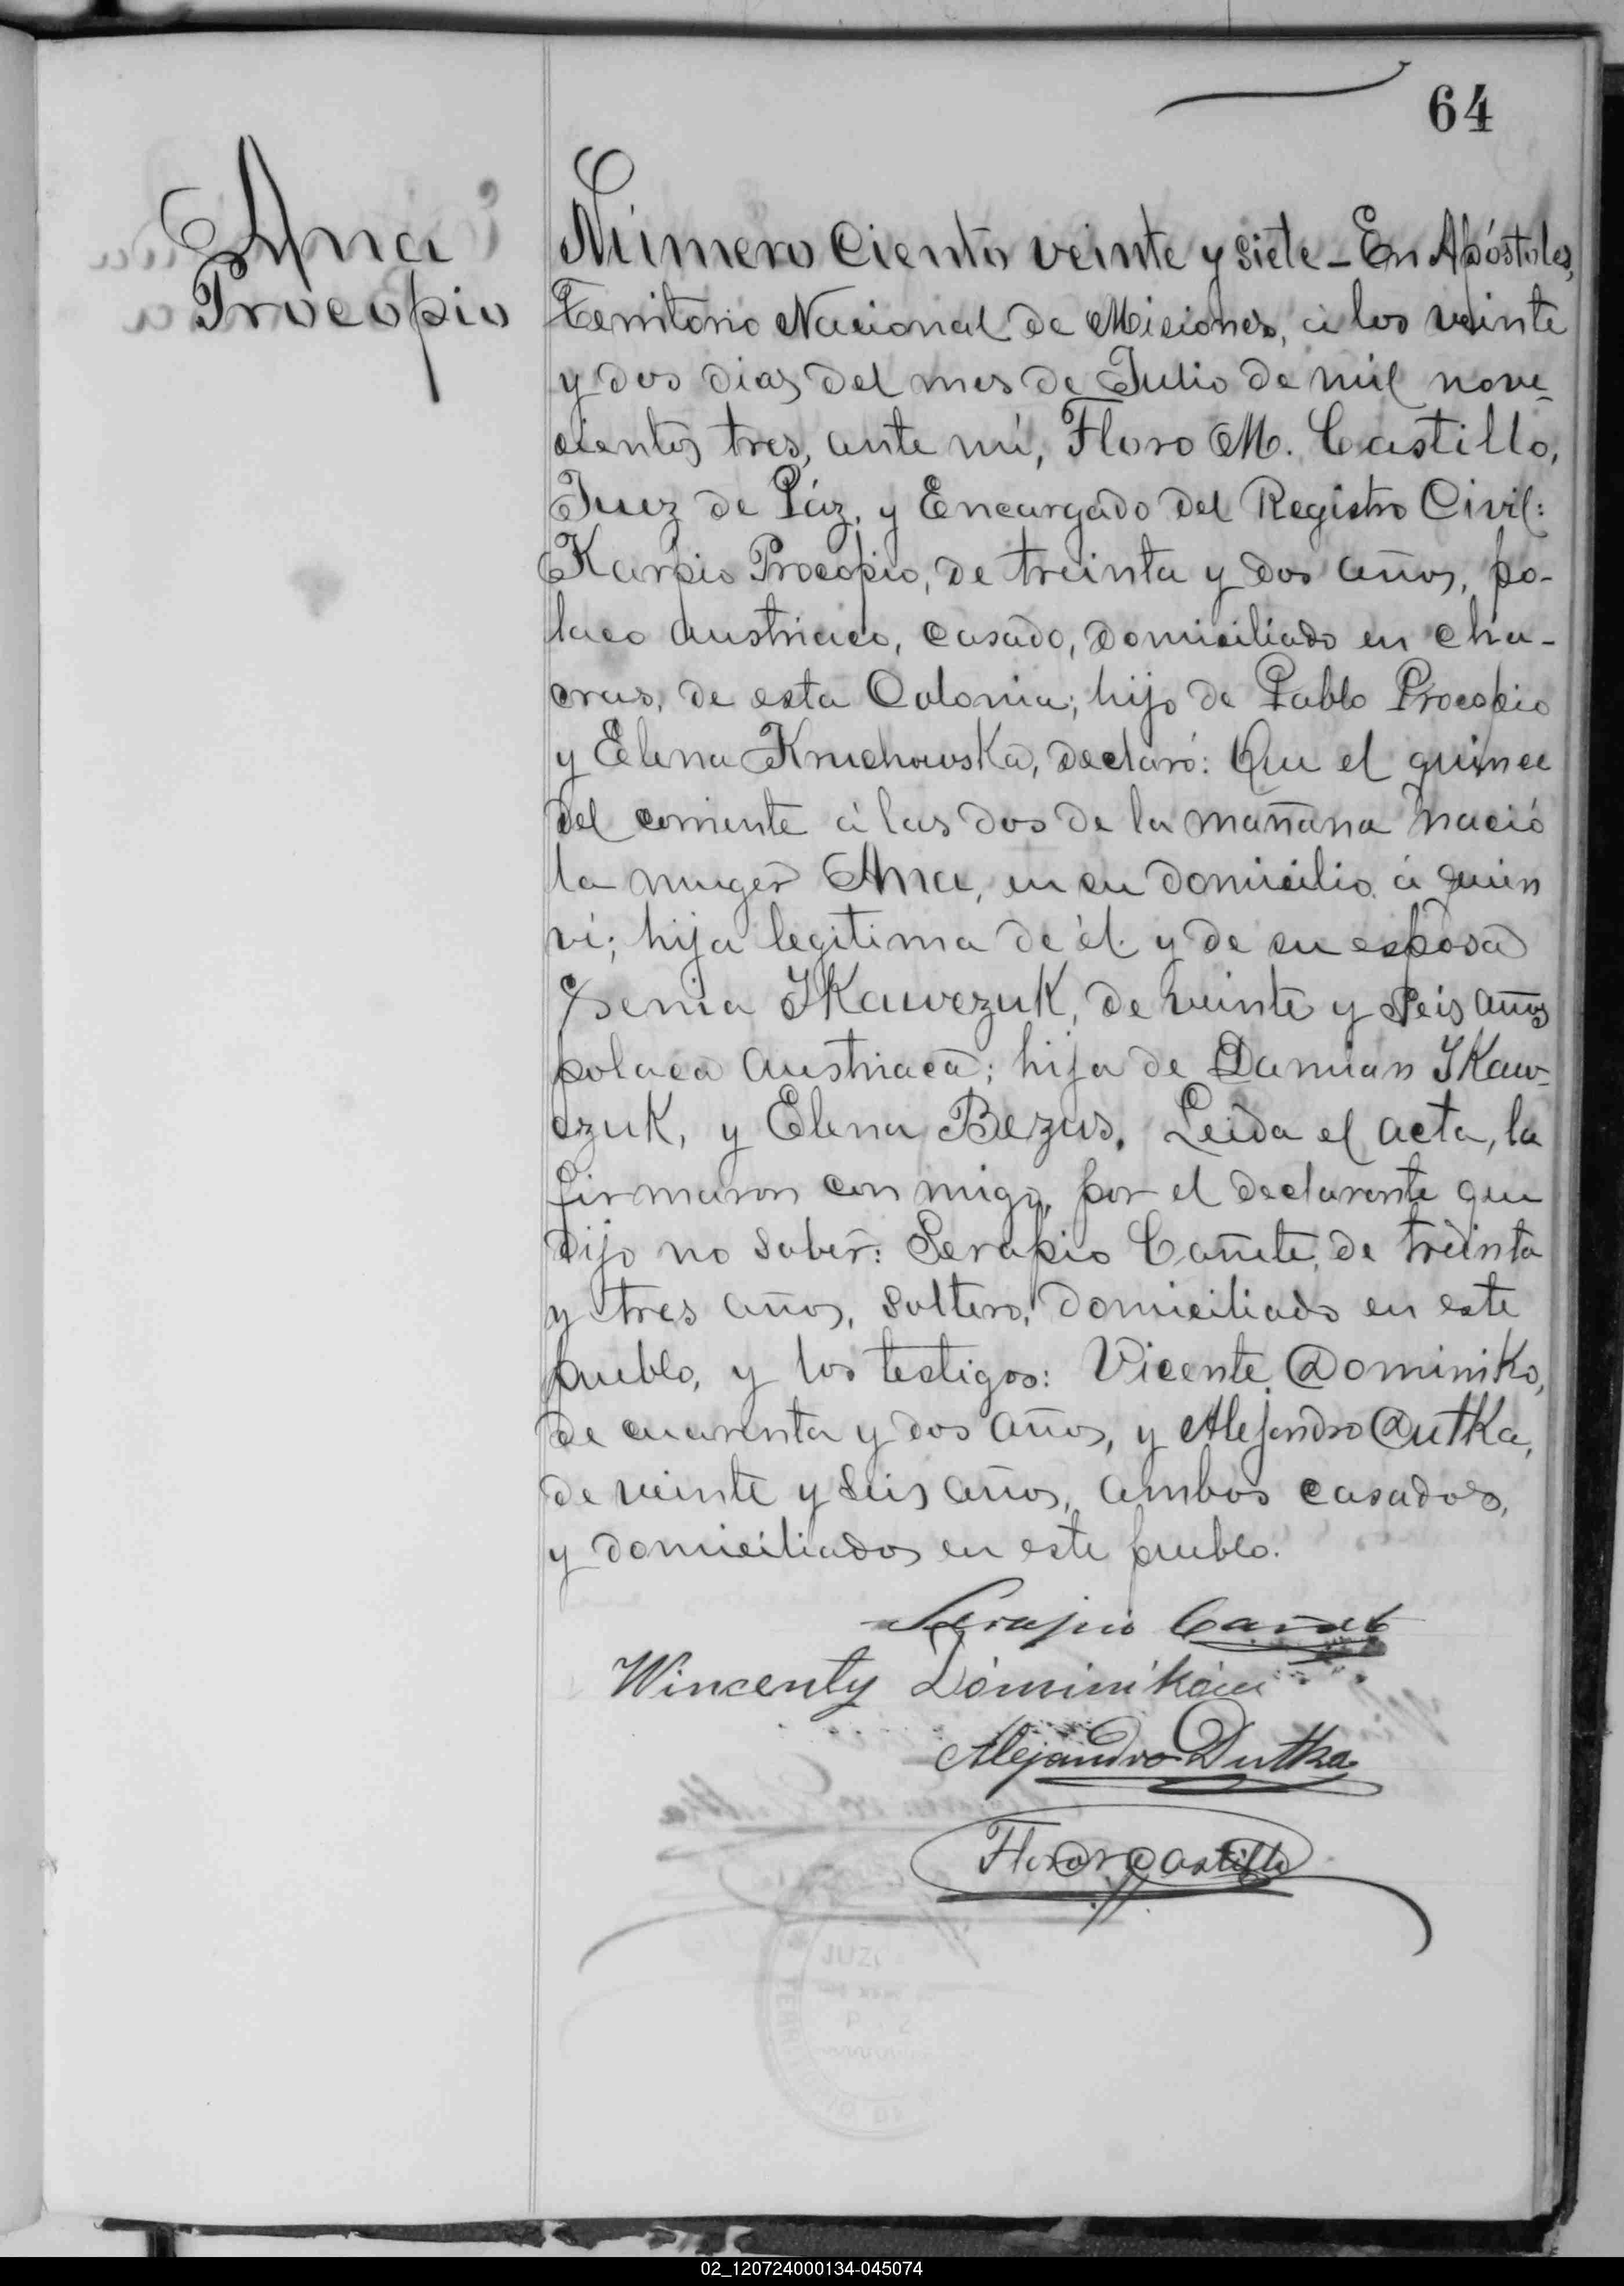 64
Ana
Procopio
Número Ciento veinte y siete - En Apóstoles,
Territorio Nacional de Misiones, á los veinte
y dos dias del mes de Julio de mil nove-
cientos tres, ante mí, Floro M. Castillo,
Juez de Páz, y Encargado del Registro Civil:
Karpio Procopio, de treinta y dos años, po-
laco austriaco, casado, domiciliado en cha-
cras, de esta Colonia; hijo de Pablo Procopio
y Elena Kruchowska, declaró: Que el quince
del corriente á las dos de la mañana nació
la muger Ana, en su domicilio á quien
ví; hija legitima de él y de su esposa
Xenia IKawczuk, de veinte y seis años
polaca austriaca; hija de Damian IKaw-
czuk, y Elena Bezus. Leida el acta, la
firmaron con migo, por el declarante que
dijo no saber: Serapio Cañete, de treinta
y tres años, soltero, domiciliado en este
pueblo, y los testigos: Vicente Dominiko,
de cuarenta y dos años, y Alejandro Dutka,
de veinte y seis años, ambos casados,
y domiciliados en este pueblo.
Serapio Cañete
Wincenty
Alejandro Dutka
Floro M Castillo
JUZ
02_120724000134-045074